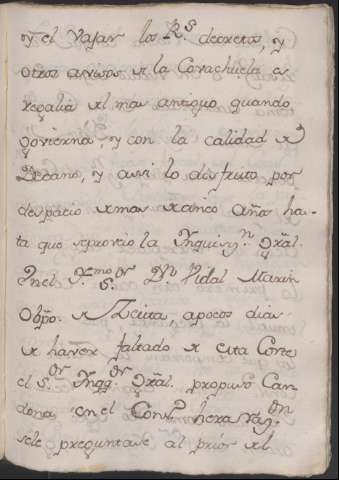 y el vajar los R.s decretos, y
otros avisos de la Covachuela es
regalia del mas antiguo quando
govierna, y con la calidad de
Decano, y assi lo disfruto por
despacio de mas de cinco años has-
ta que se proveio la Inquis.n Gral.
En el Ex.mo S.or D.n Vidal Marin
Obpo. de Zeuta, a pocos dias
de haver faltado de esta Corte
el S.or Inqq.or Gral. propuso Can-
dona en el Cons.o hera raz.on
sele preguntase al prior del